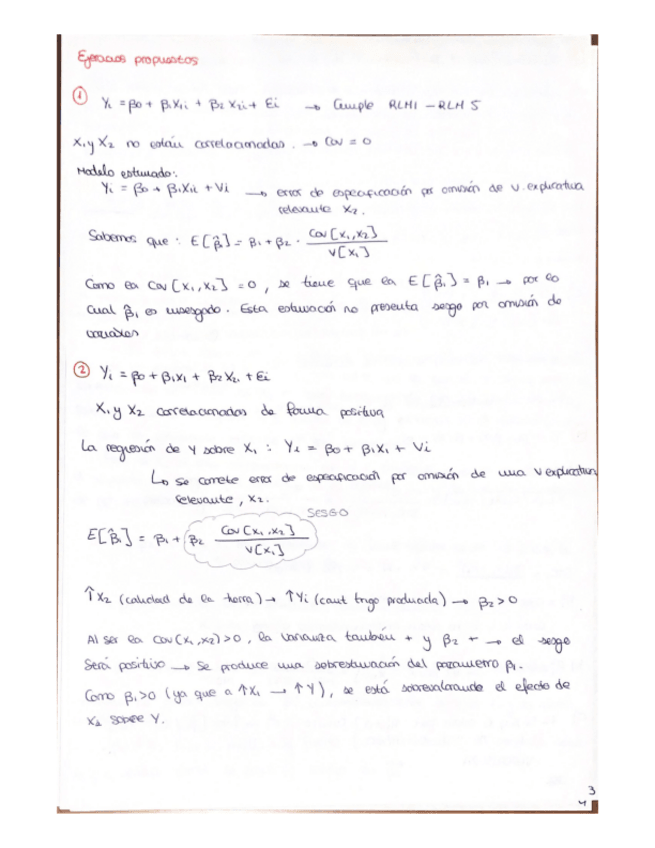 Ejercicios propuestos
① Yi = β0 + β1X1i + β2X2i + Ei → Cumple RLM1 – RLM5
X1 y X2 no están correlacionadas. → Cov = 0
Modelo estimado:
Yi = β0 + β1X1i + Vi → error de especificación por omisión de v. explicativa
relevante X2.
Sabemos que: E[β̂1] = β1 + β2 · Cov[X1,X2] / V[X1]
Como la Cov[X1,X2] = 0, se tiene que la E[β̂1] = β1 → por lo
cual β̂1 es insesgado. Esta estimación no presenta sesgo por omisión de
variables
② Yi = β0 + β1X1 + β2X2i + Ei
X1 y X2 correlacionadas de forma positiva
La regresión de Y sobre X1: Yi = β0 + β1X1 + Vi
↳ se comete error de especificación por omisión de una v explicativa
relevante, X2.
SESGO
E[β̂1] = β1 + β2 Cov[X1,X2] / V[X1]
↑X2 (calidad de la tierra) → ↑Yi (cant trigo producida) → β2>0
Al ser la Cov(X1,X2)>0, la varianza también + y β2 + → el sesgo
será positivo → Se produce una sobrestimación del parámetro β1.
Como β1>0 (ya que a ↑X1 → ↑Y), se está sobrevalorando el efecto de
X1 sobre Y.
3
4